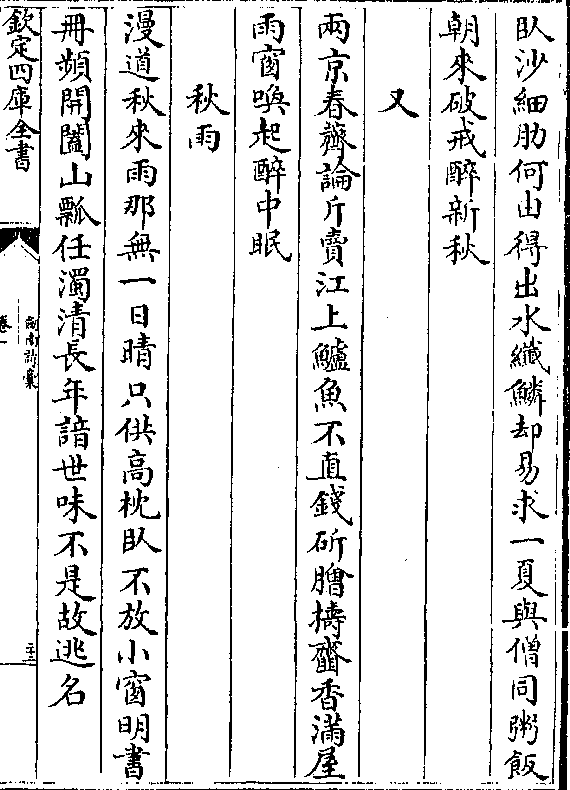 臥沙細肋何由得出水纖鱗却易求一夏與僧同粥飯
朝來破戒醉新秋
又
兩京春薺論斤賣江上鱸魚不直錢斫膾擣虀香滿屋
雨窗喚起醉中眠
秋雨
漫道秋來雨那無一日晴只供高枕臥不放小窗明書
冊頻開闔山瓢任濁清長年諳世味不是故逃名
欽定四庫全書
卷一
劒南詩稾
二十三